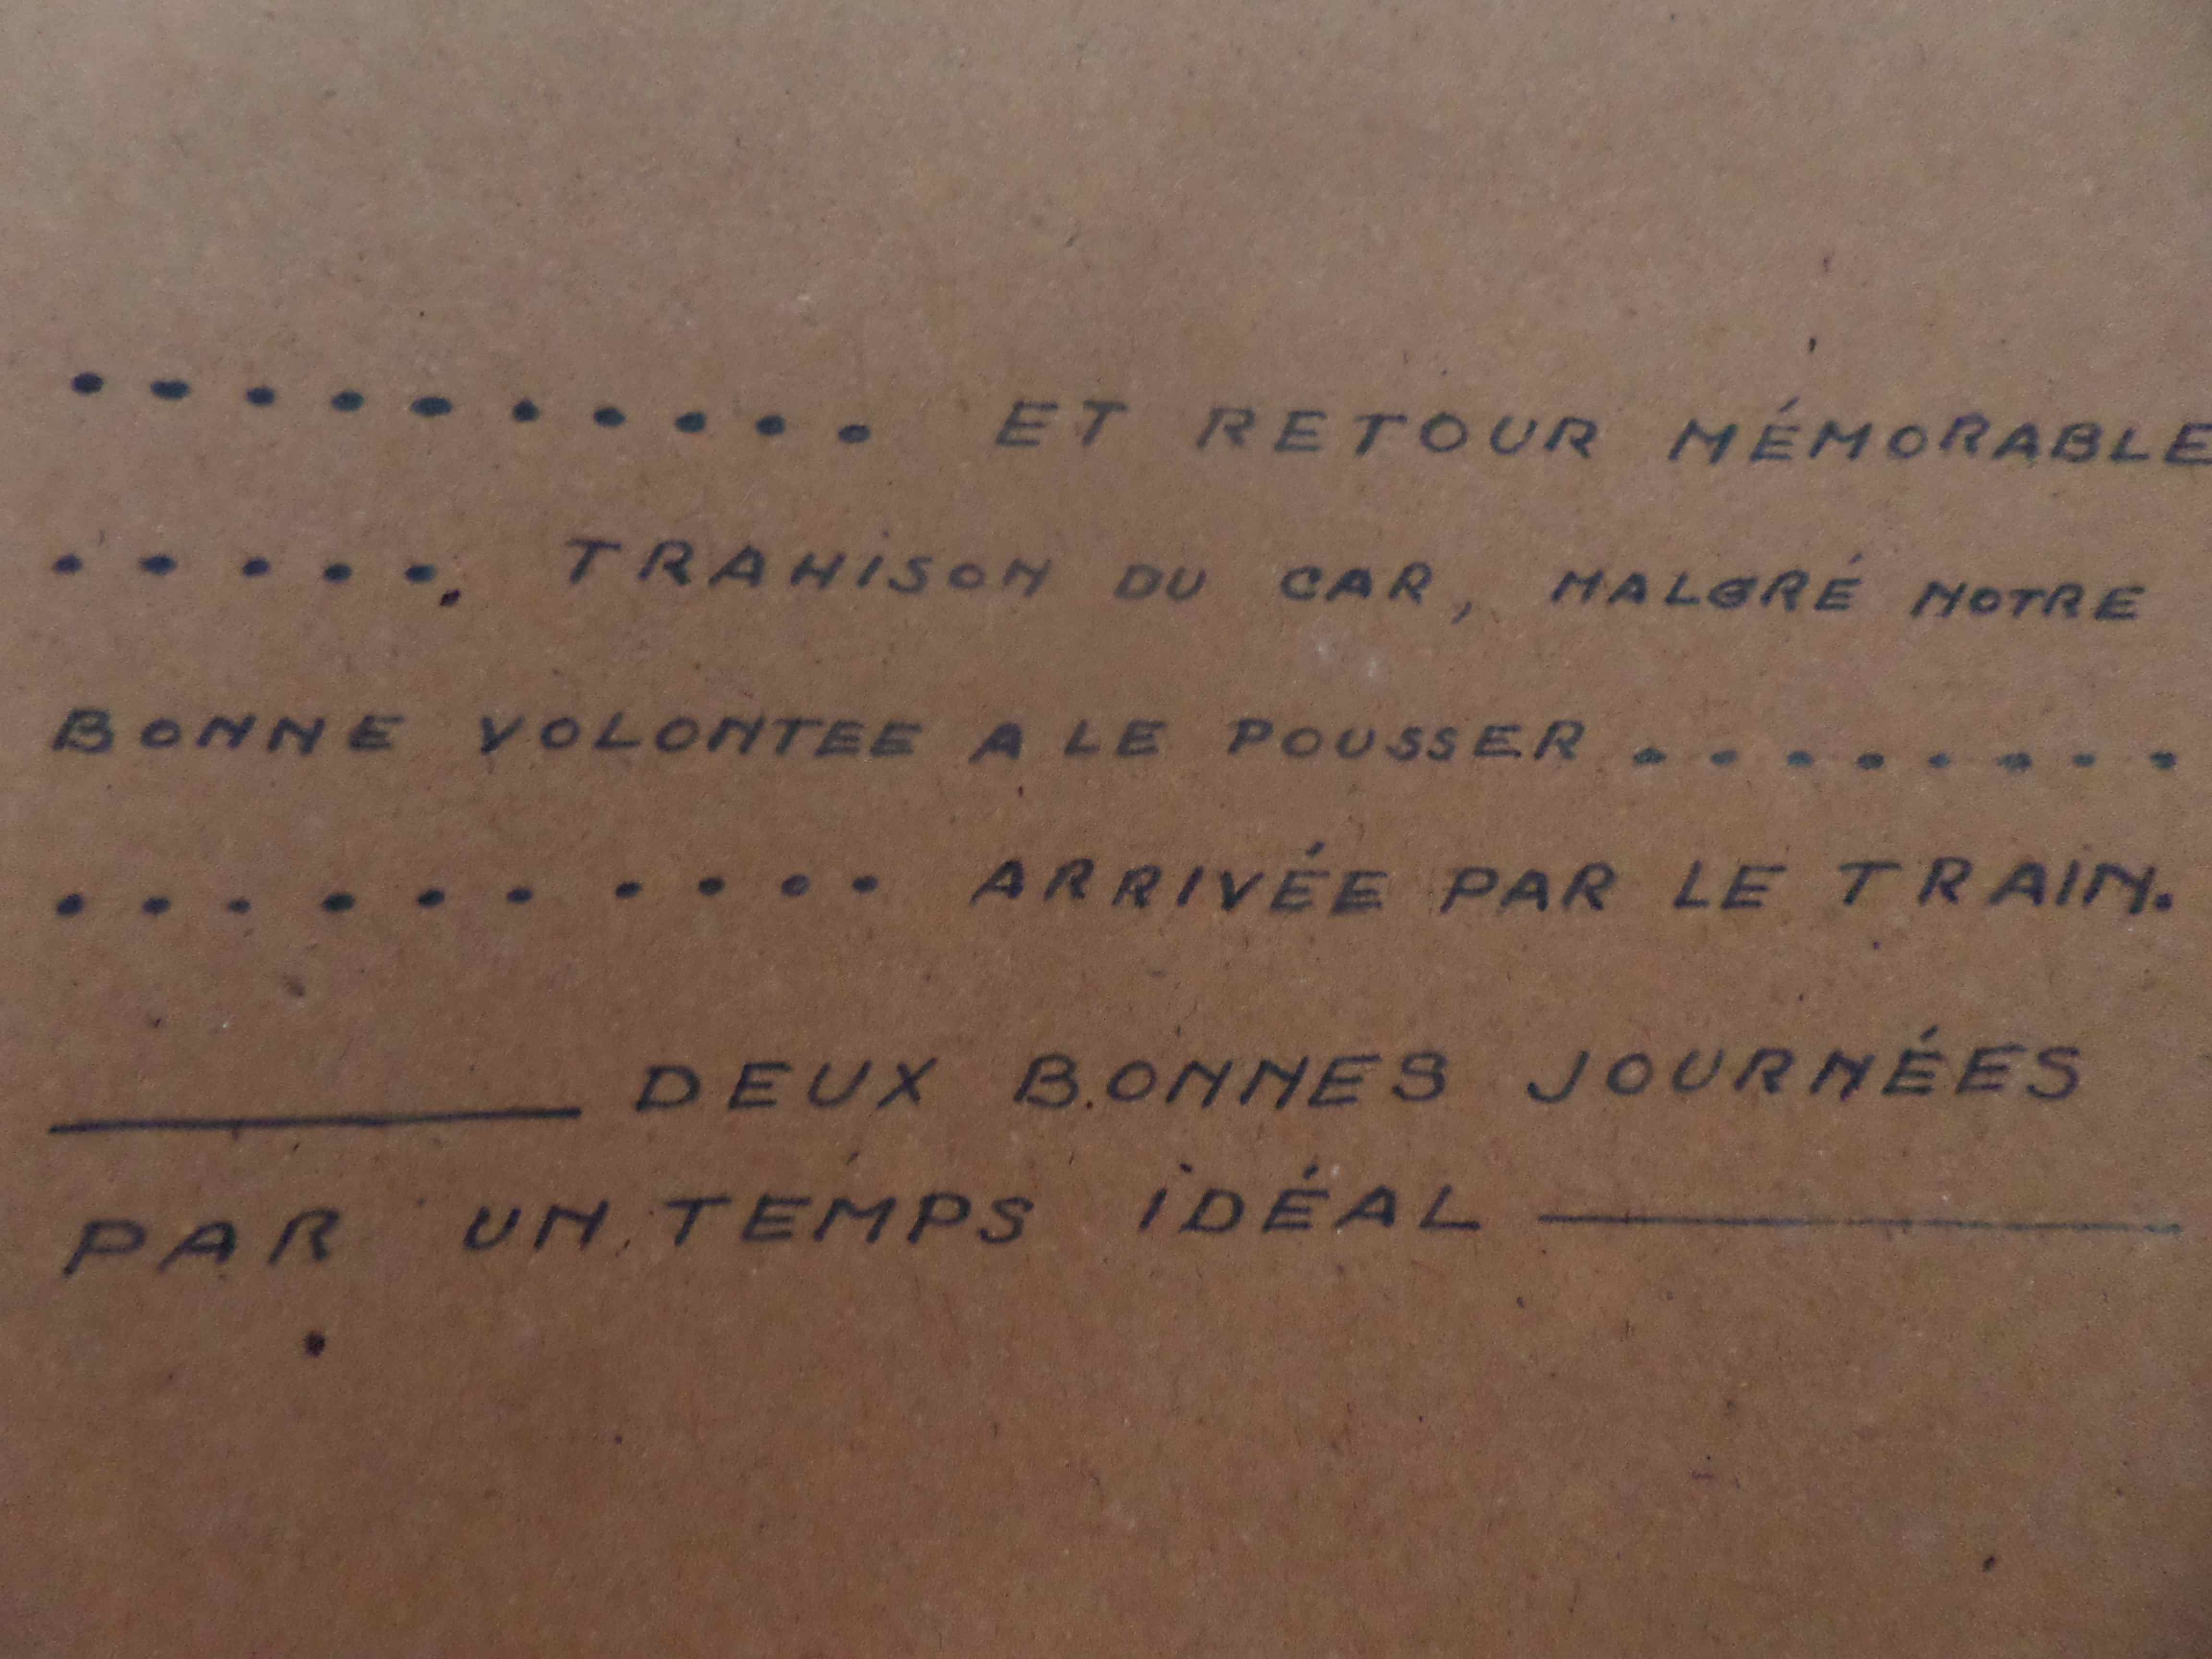 .......... ET RETOUR MÉMORABLE
...... TRAHISON DU CAR, MALGRÉ NOTRE
BONNE VOLONTEE A LE POUSSER ........
.......... ARRIVÉE PAR LE TRAIN.
______ DEUX BONNES JOURNÉES
PAR UN TEMPS IDÉAL ______